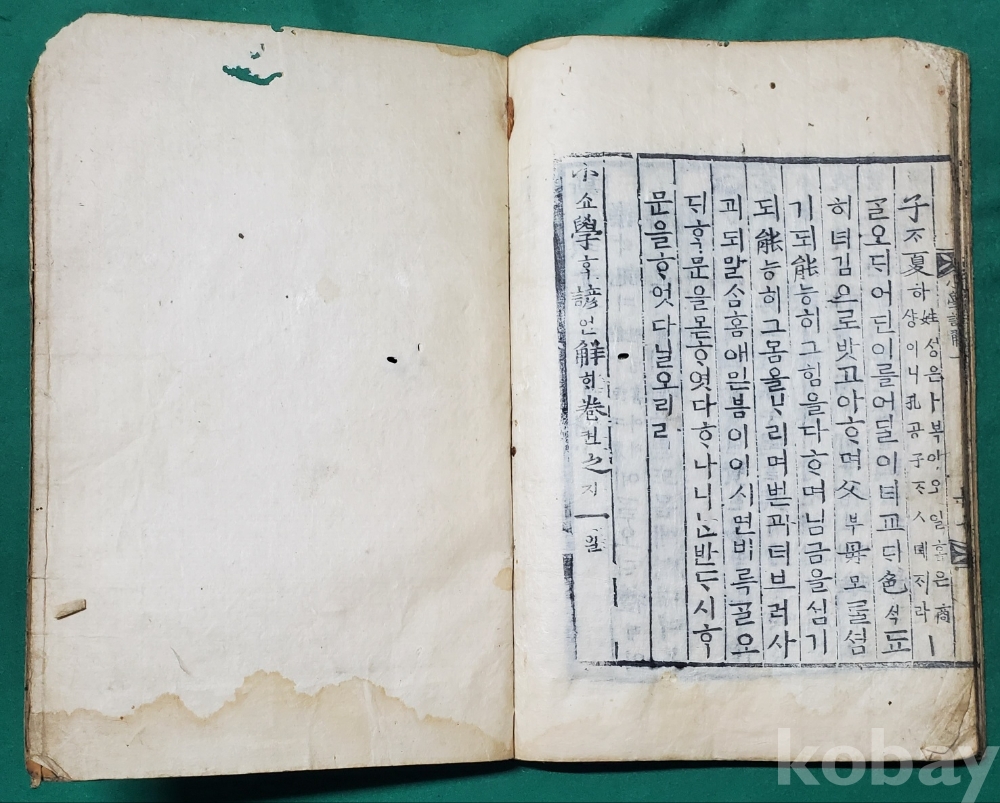 小學諺解
子ᄌᆞ夏하姓성은卜복이오일홈은商샹이니孔공子ᄌᆞㅅ뎨ᄌᆡ라ㅣ
ᄀᆞᆯ오ᄃᆡ어딘이를어딜이녀교ᄃᆡ色ᄉᆡᆨ됴
히녀김으로밧고아ᄒᆞ며父부母모ᄅᆞᆯ셤
기되能능히그힘을다ᄒᆞ며님금을셤기
되能능히그몸올ᄇᆞ리며벋과더브러사
괴되말ᄉᆞᆷ홈애믿븜이이시면비록ᄀᆞᆯ오
ᄃᆡᄒᆞᆨ문을몯ᄒᆞ엿다ᄒᆞ나나ᄂᆞᆫ반ᄃᆞ시ᄒᆞᆨ
문을ᄒᆞ엿다닐오리라
小쇼學ᄒᆞᆨ諺언解ᄒᆡ卷권之지一일
kobay